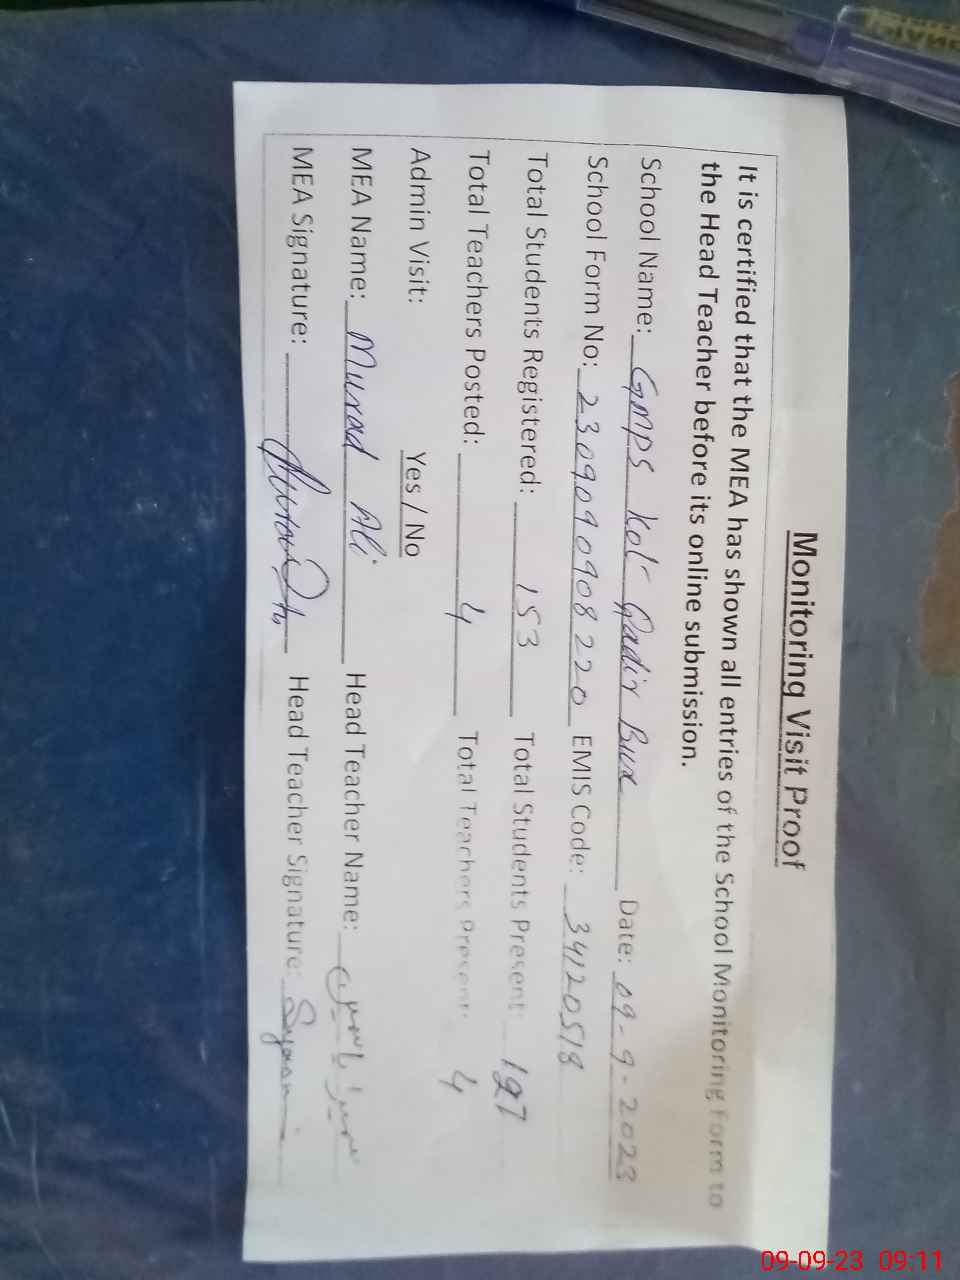 Monitoring Visit Proof
It is certified that the MEA has shown all entries of the School Monitoring Form to
the Head Teacher before its online submission.
School Name: GMPS Kot Qadir Bux Date: 09-9-2023
School Form No: 2309090908220 EMIS Code: 34120518
Total Students Registered: 153 Total Students Present: 127
Total Teachers Posted: 4 Total Teachers Present: 4
Admin Visit: Yes / No
MEA Name: Murad Ali Head Teacher Name:
MEA Signature: Head Teacher Signature:
09-09-23 09:11